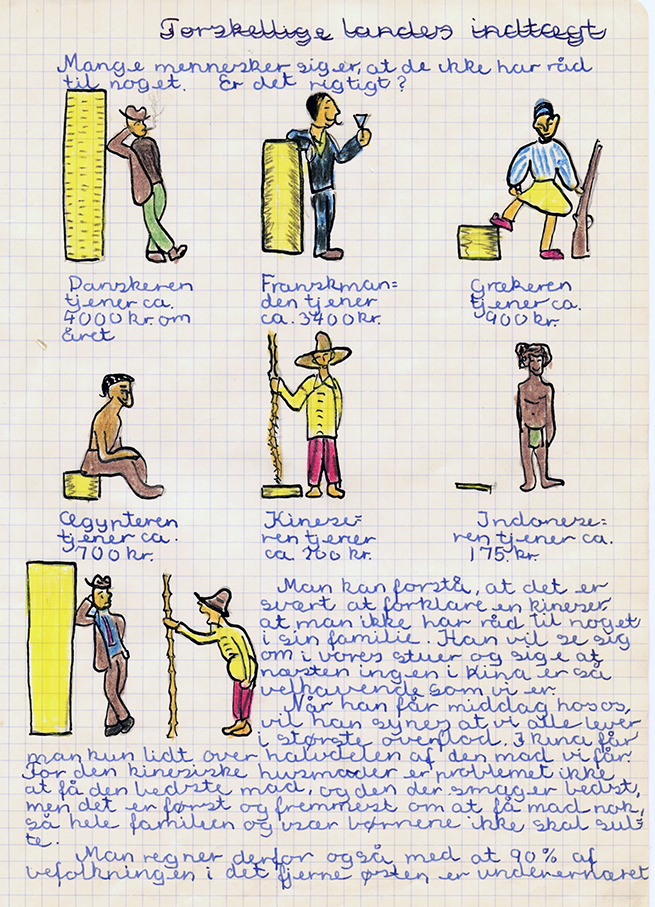 Forskellige landes indtægt
Mange mennesker siger, at de ikke har råd
til noget. Er det rigtigt?
Danskeren
tjener ca.
4000 kr. om
året
Franskman=
den tjener
ca. 3400 kr.
Grækeren
tjener ca.
900 kr.
Ægypteren
tjener ca.
700 kr.
Kinese=
ren tjener
ca. 200 kr.
Indonese=
ren tjener ca.
175. kr.
Man kan forstå, at det er
svært at forklare en kineser,
at man ikke har råd til noget
i sin familie. Han vil se sig
om i vores stuer og sige at
næsten ingen i Kina er så
velhavende som vi er.
Når han får middag hos os,
vil han synes at vi alle lever
i største overflod. I kina får
man kun lidt over halvdelen af den mad vi får.
For den kinesiske husmoder er problemet ikke
at få den bedste mad, og den der smager bedst,
men det er først og fremmest om at få mad nok,
så hele familien og især børnene ikke skal sul=
te.
Man regner derfor også med at 90% af
befolkningen i det fjerne østen er underernæret